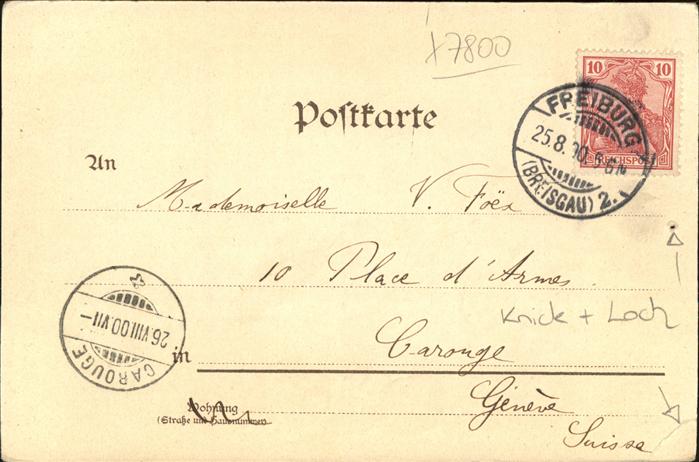 x7800
10 10
REICHSPOST
FREIBURG
25.8.00.5-6N
(BREISGAU) 2.
Postkarte
An
Mademoiselle V. Foëx
10 Place d'Armes
Knick + Loch
in Carouge
26.VIII.00.VII-
CAROUGE
Genève
Wohnung
(Straße und Hausnummer)
Suisse